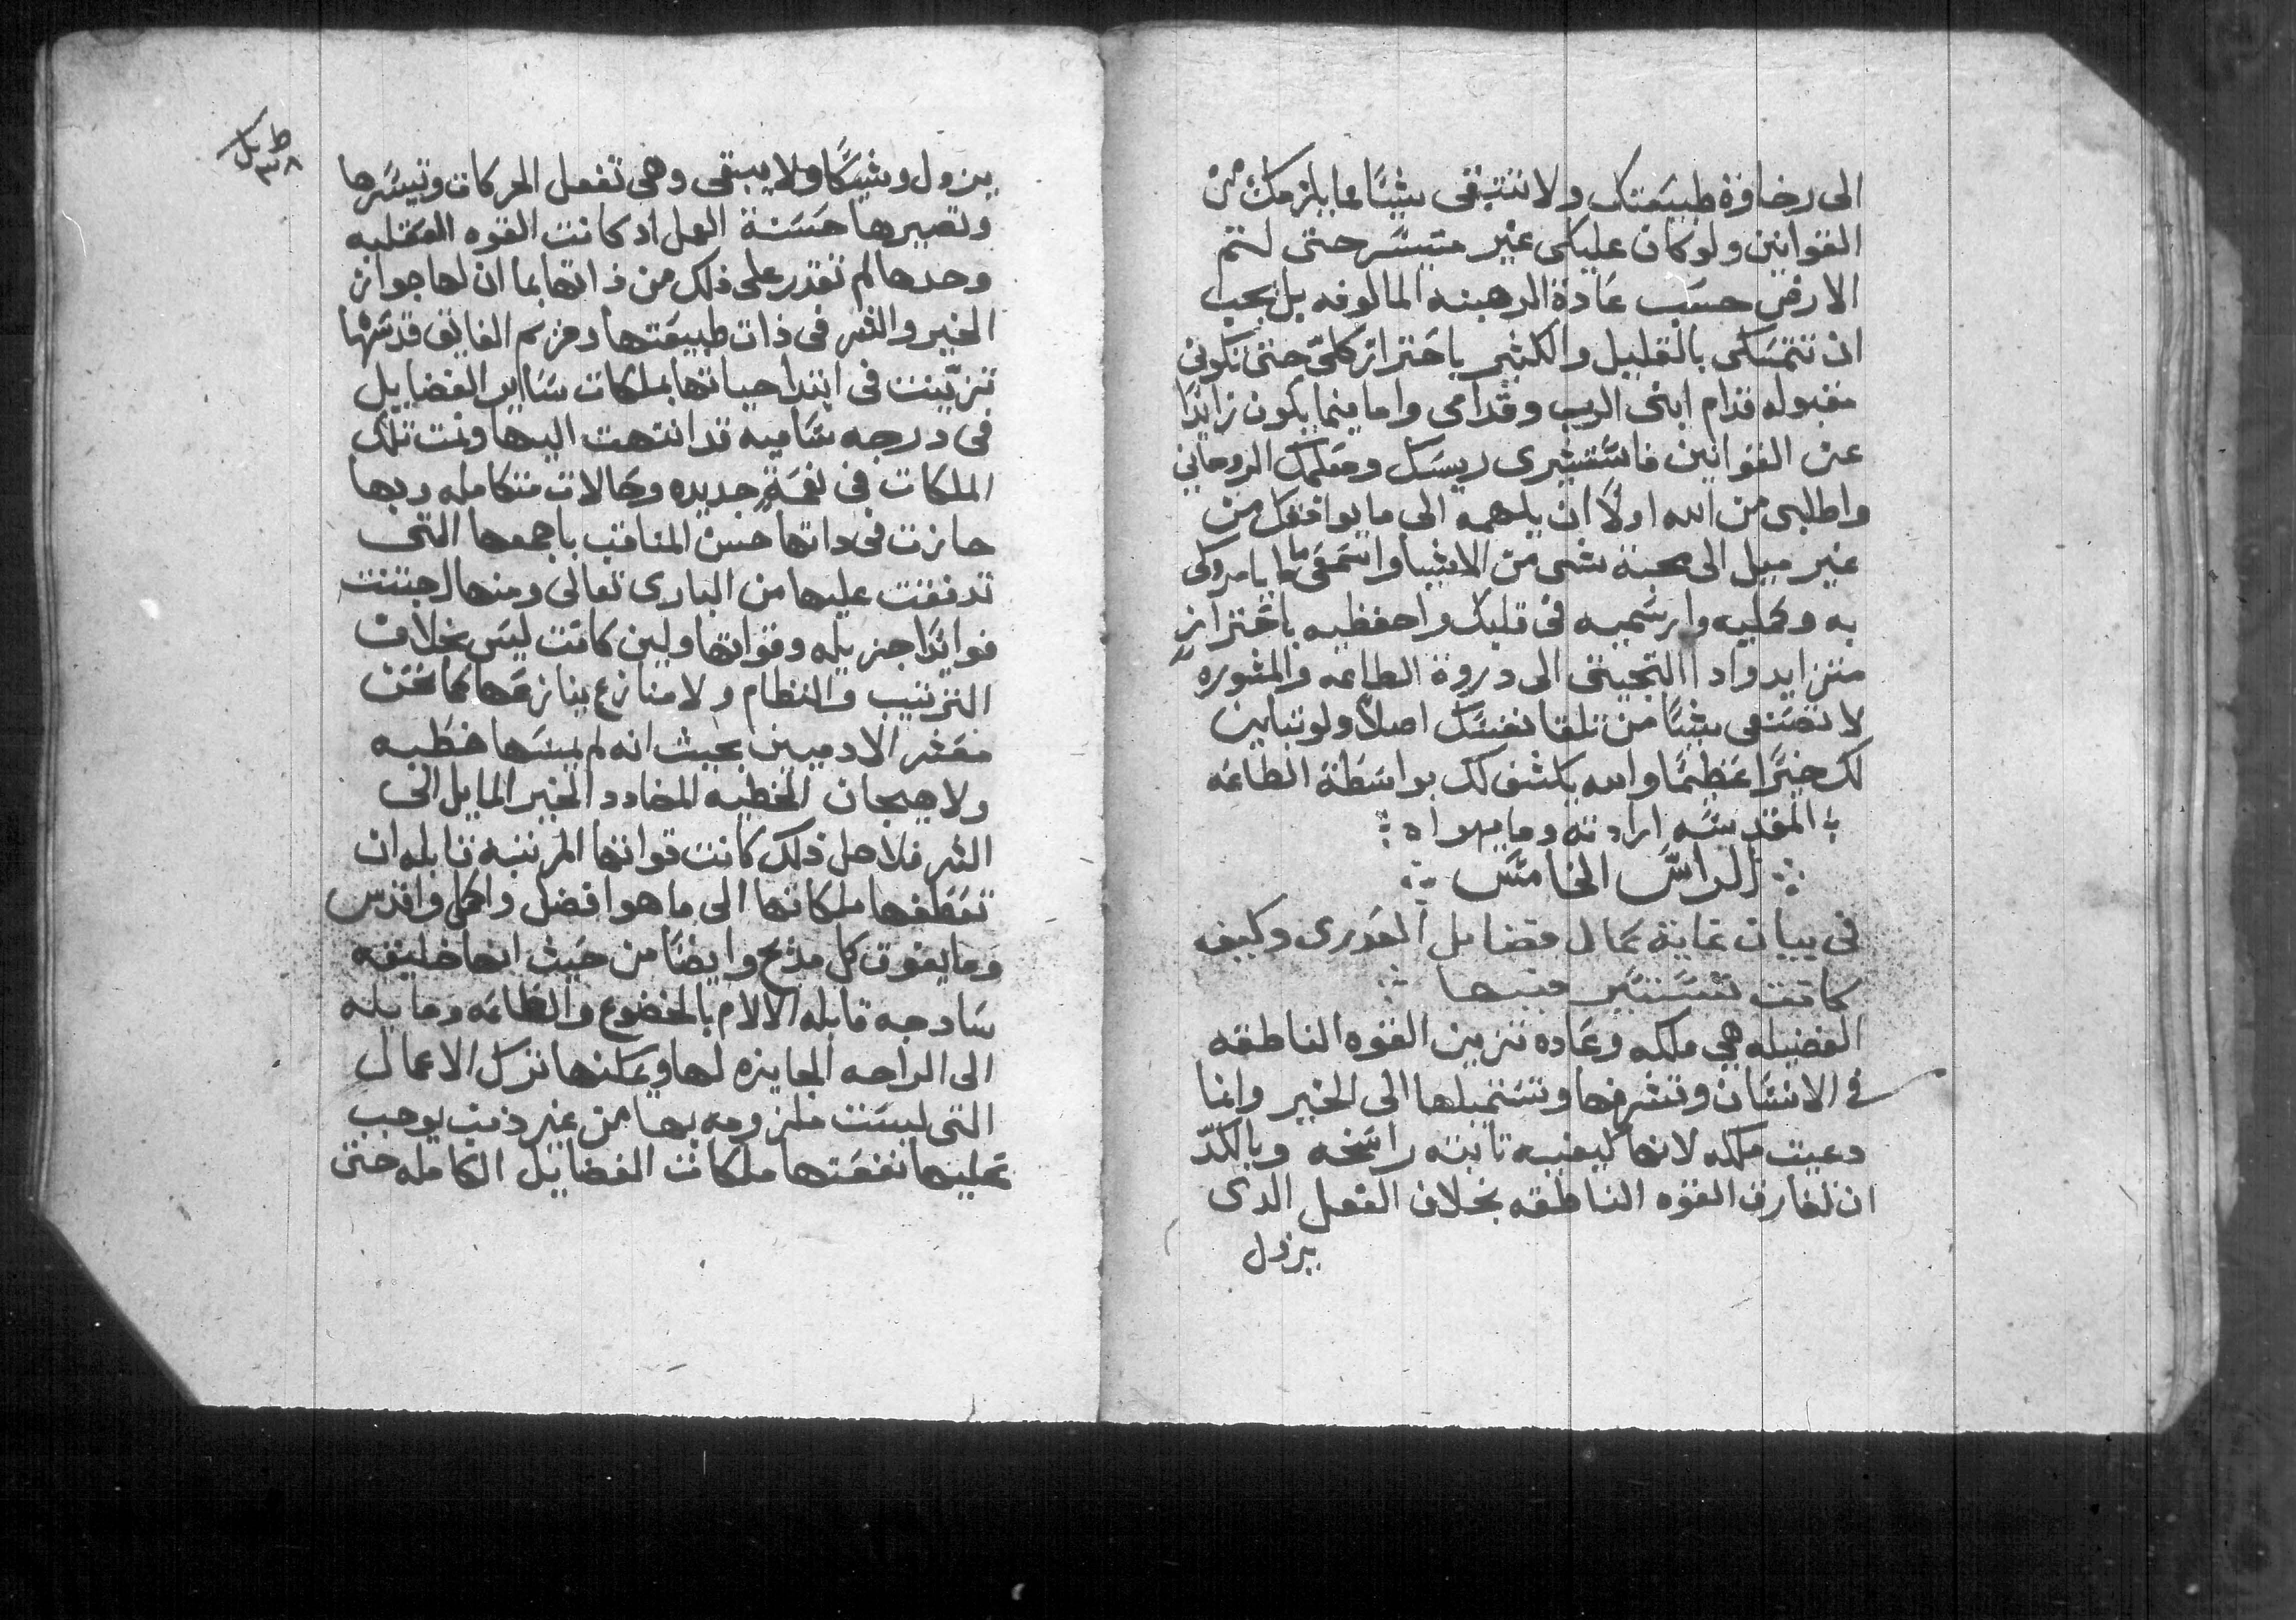 الى رخاوة طبيعتك ولا تتبقى شيًا مما يلزمك من
القوانين ولو كان عليكى غير متيسر حتى لتم
الارض حسب عادة الرهبنه المالوفه بل يجب
ان تتمسكى بالقليل والكثير باحتراز كلىّ حتى تكونى
مقبوله قدام ابنى الرب وقدامى واما فيما يكون زايدًا
عن القوانين فاستشيرى ريسك ومعلمك الروحانى
واطلبى من الله اولًا ان يلهمه الى ما يوافقك من
غير ميل الى محبة شى من الاشيا واسمعى ما يامروكى
به وكمليه وارسميه فى قلبك واحفظيه باحتراز
متزايد واد االتجيتى الى دروة الطاعه والمشوره
لا تصنعى شيًا من تلقا نفسك اصلًا ولو تباين
لك خيرًا عظيمًا والله يكشف لك بواسطة الطاعه
المقدسه ارادته وما يهواه
الراس الخامس
فى بيان غاية كمال فضايل العدرى وكيف
كانت تستسير فيها
الفضيله هى ملكه وعاده تزين القوه الناطقه
فى الانسان وتشرفها وتستميلها الى الخير وانما
دعيت ملكه لانها كيفيه تابته راسخه وبالكدّ
ان تفارق القوه الناطقه بخلاف الفعل الدى
يزول
يزول وشيكًا ولا يبقى وهى تفعل الحركات وتيسرها
وتصيرها حسنة العمل اد كانت القوه العقليه
وحدها لم تقدر على ذلك من ذاتها بما ان لها جواز
الخير والشر فى ذات طبيعتها ومريم الفايق قدسها
تزيّنت فى ابتدا حياتها بملكات ساير الفضايل
فى درجه ساميه قد انتهت اليها ونمت تلك
الملكات فى نعمةٍ جديده وكمالات متكامله وبها
حازت فى داتها حسن المناقب باجمعها التى
تدفقت عليها من البارى تعالى ومنها اجتنت
فوايدًا جزيله وقواتها ولين كانت ليس بخلاف
الترتيب والنظام ولا منازع ينازعها كما نحن
معشر الادميين بحيث انه لم يمسها خطيه
ولا هيجان الخطيه المضادد الخير المايل الى
الشر فلاجل ذلك كانت قواتها المرتبه قابله ان
تعطفها ملكاتها الى ما هو افضل واكمل واقدس
وما يفوق كل مديح وايضًا من حيث انها خليقه
سادجه قابله الالام بالخضوع والطاعه ومايله
الى الراحه الجايزه لها ويمكنها تترك الاعمال
التى ليست ملزومه بها من غير ذنب يوجب
عليها نفعتها ملكات الفضايل الكامله حتى